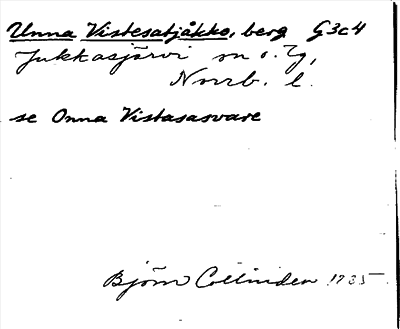 Unna Vistesatjåkko, berg G3c4
Jukkasjärvi sn o. tg,
Norrb. l.
se Onna Vistasasvare
Björn Collinder 1935